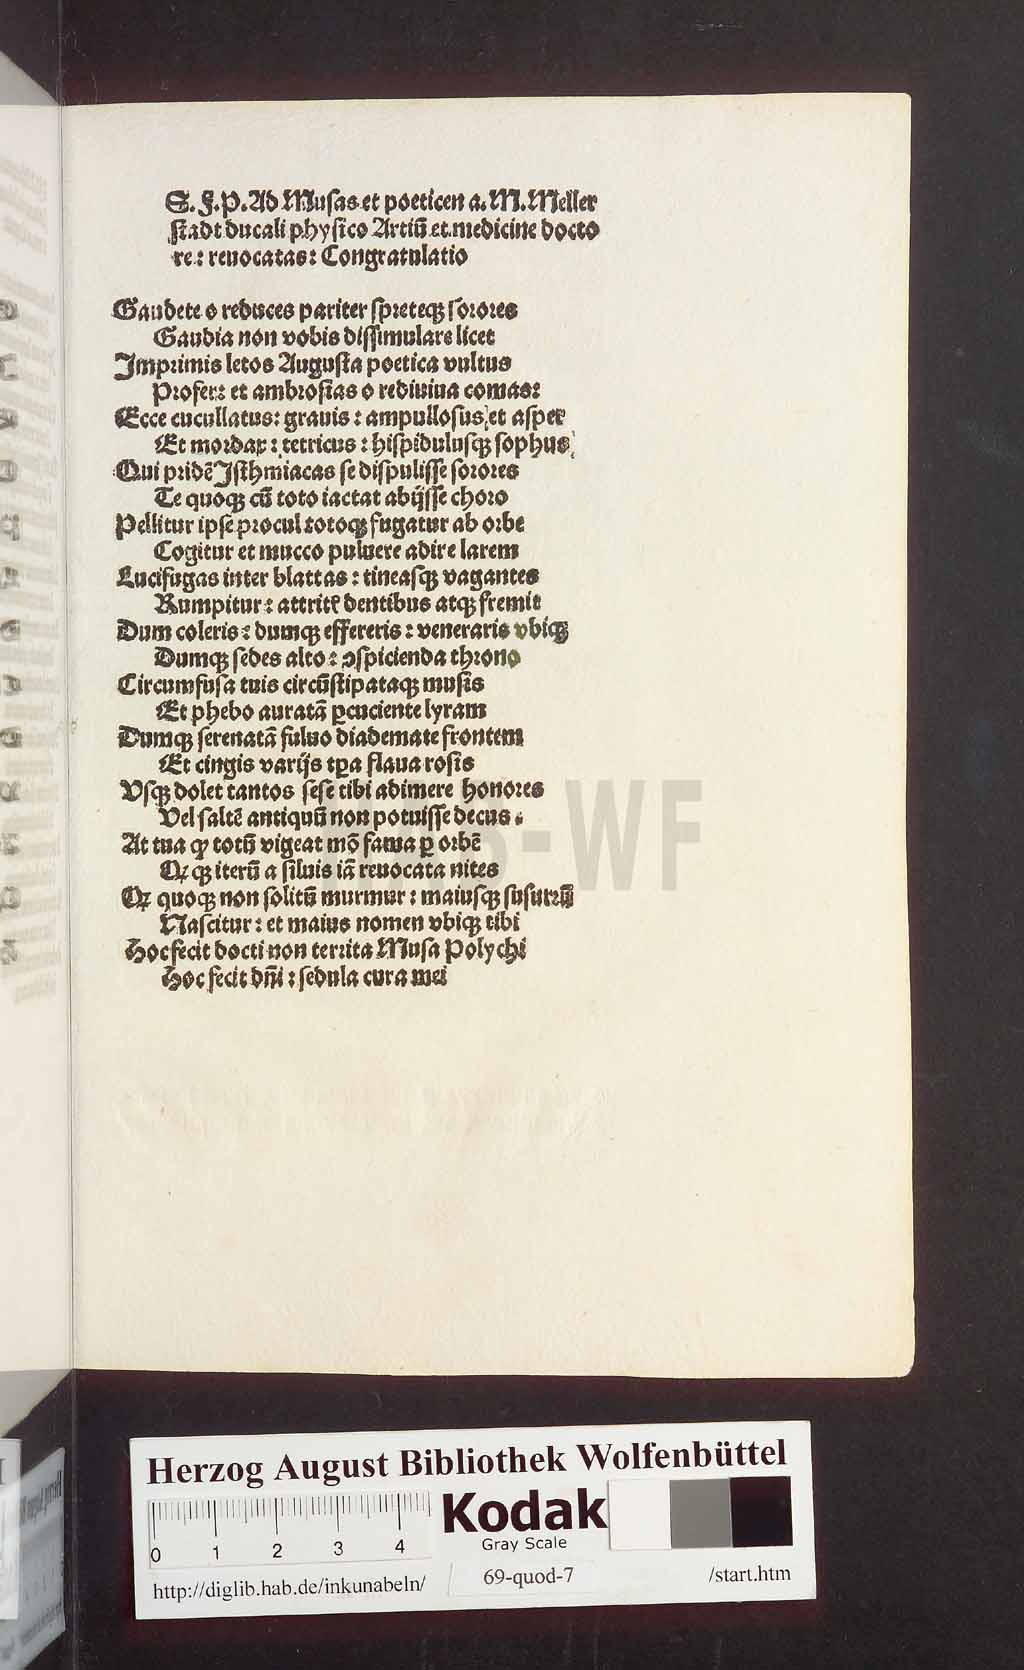 S. F. P. Ad Musas et poeticen a. M. Meller
stadt ducali physico Artiū et medicine docto
re: reuocatas: Congratulatio
Gaudete o reduces pariter spreteqꝫ sorores
Gaudia non vobis dissimulare licet
Imprimis letos Augusta poetica vultus
Profer: et ambrosias o rediuiua comas:
Ecce cucullatus: grauis: ampullosus et asper
Et mordax: tetricus: hispidulusqꝫ sophus
Qui pridē Isthmiacas se dispulisse sorores
Te quoqꝫ cū toto iactat abijsse choro
Pellitur ipse procul totoqꝫ fugatur ab orbe
Cogitur et mucco puluere adire larem
Lucifugas inter blattas: tineasqꝫ vagantes
Rumpitur: attritꝭ dentibus atqꝫ fremit
Dum coleris: dumqꝫ effereris: veneraris vbiqꝫ
Dumqꝫ sedes alto: ꝯspicienda throno
Circumfusa tuis circūstipataqꝫ musis
Et phebo auratā ꝑcuciente lyram
Dumqꝫ serenatā fuluo diademate frontem
Et cingis varijs tꝑa flaua rosis
Vsqꝫ dolet tantos sese tibi adimere honores
Vel saltē antiquū non potuisse decus.
At tua ꝙ totū vigeat mō fama ꝑ orbē
Qꝫ qꝫ iterū a siluis iā reuocata nites
Qꝫ quoqꝫ non solitū murmur: maiusqꝫ susurrū
Nascitur: et maius nomen vbiqꝫ tibi
Hoc fecit docti non territa Musa Polychi
Hoc fecit dn̄i: sedula cura mei
HAB-WF
Herzog August Bibliothek Wolfenbüttel
Kodak
Gray Scale
0 1 2 3 4
http://diglib.hab.de/inkunabeln/ 69-quod-7 /start.htm